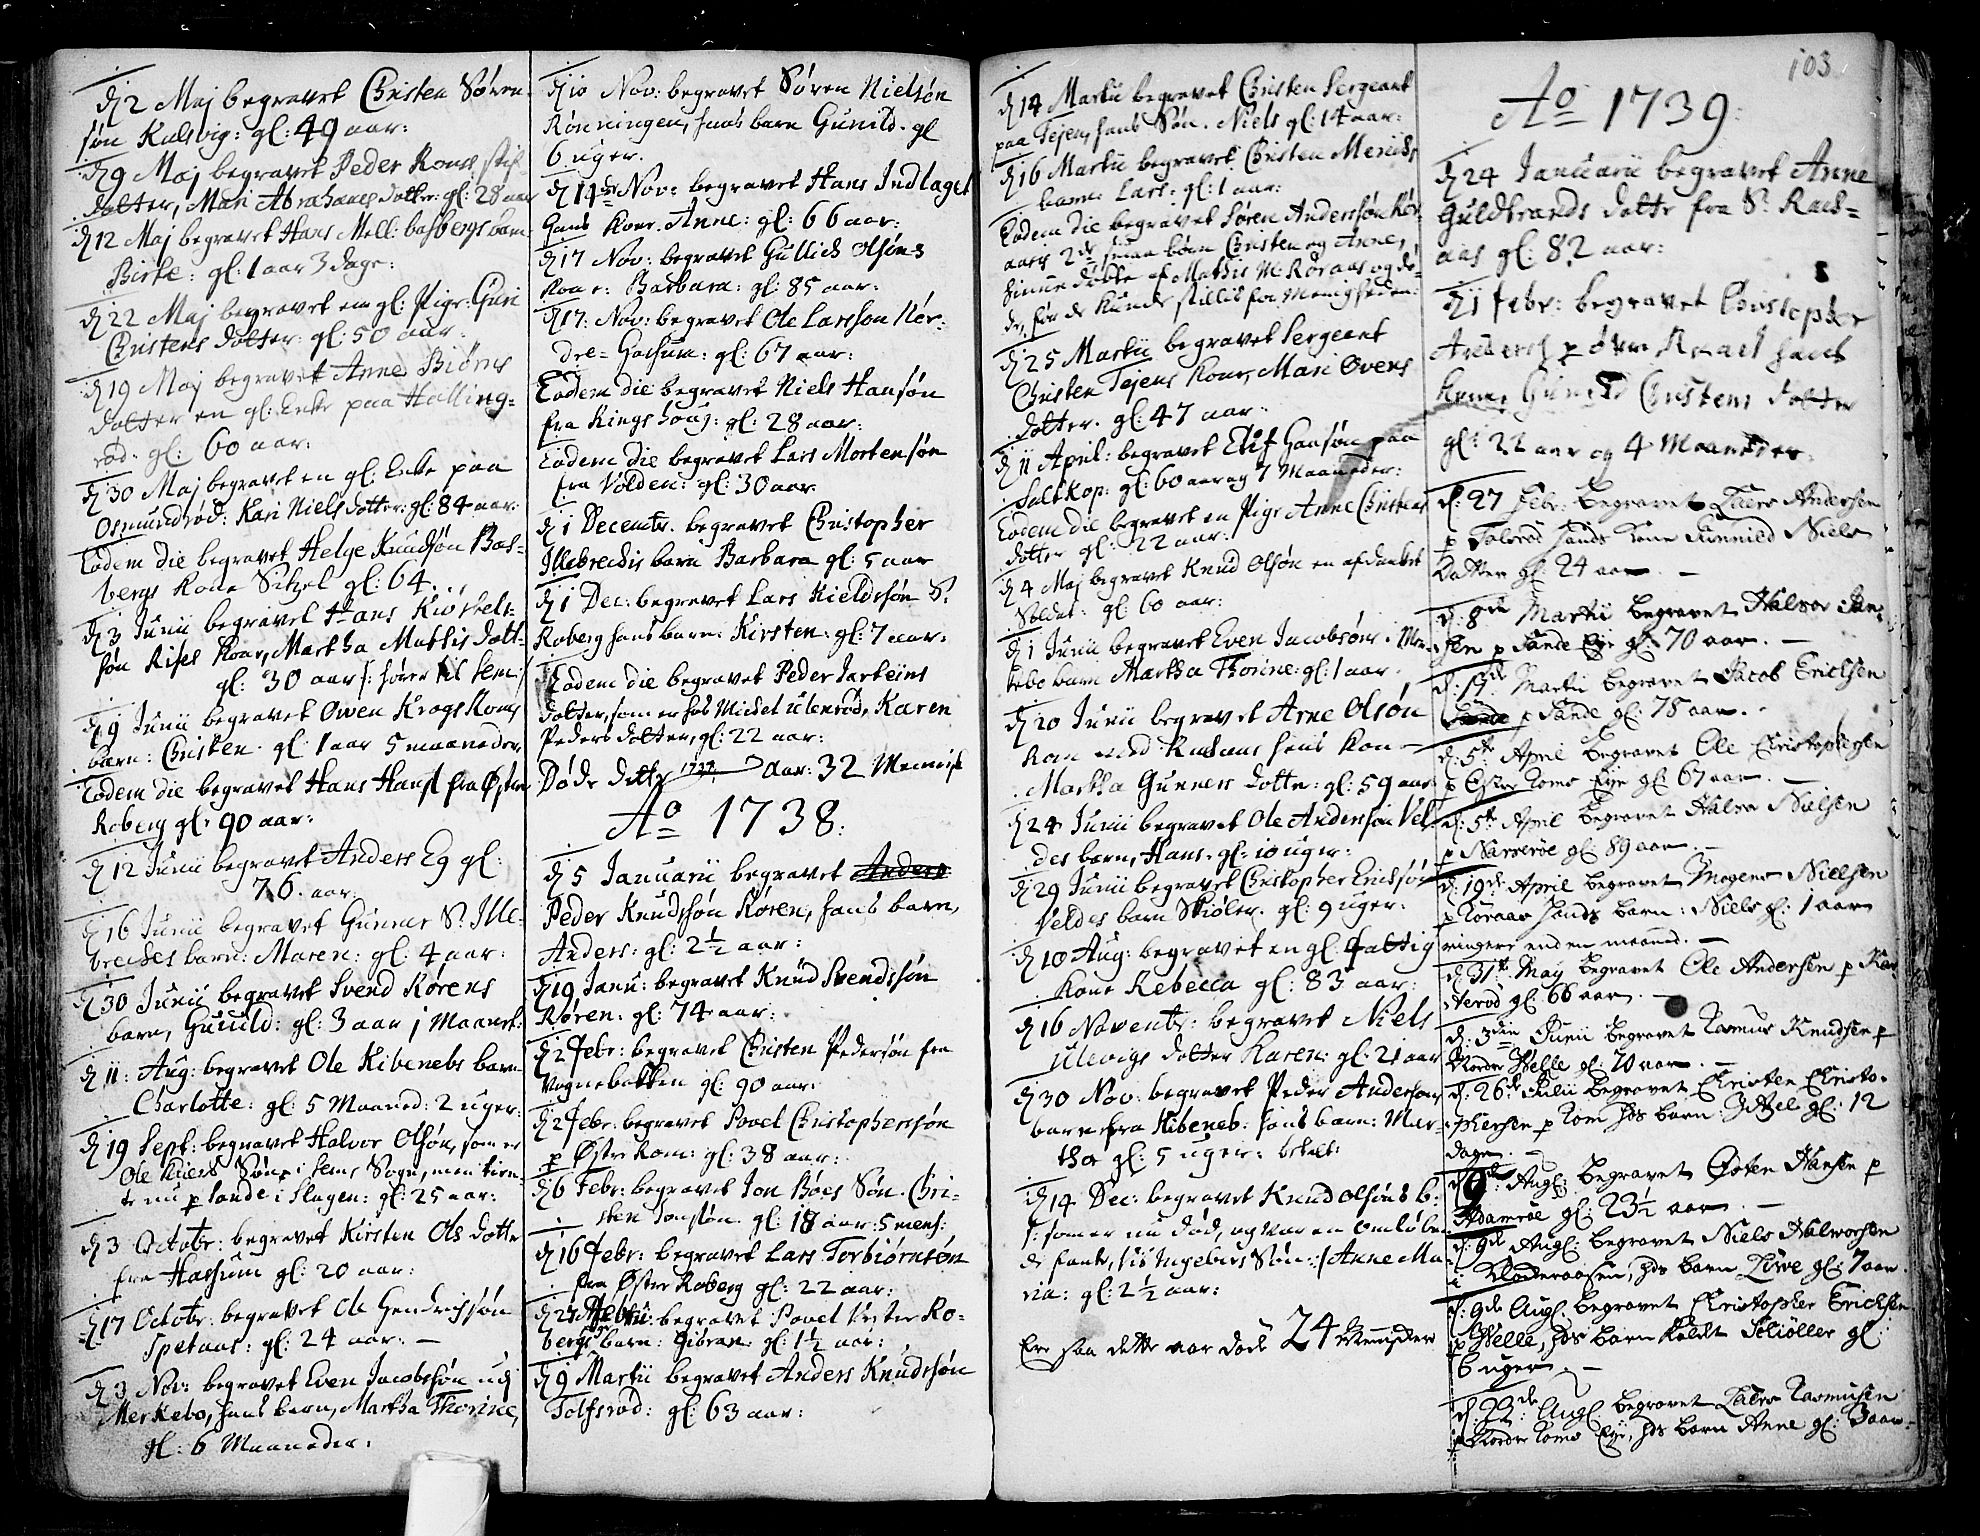 d 2 Maj begravet Christen Søren-
søn Kalsvig: gl: 49 aar:
d 9 Maj begravet Peder Roms stif-
dotter, Mari Abrahams dotter: gl: 28 aar
d 12 Maj begravet Hans Mell: basbergs barn
Birte: gl: 1 aar 3 dage:
d 22 Maj begravet en gl: Pige: Guri
Christens dotter: gl: 50 aar:
d 19 Maj begravet Anne Biørns
dotter en gl: Enke paa Halling-
rød: gl: 60 aar:
d 30 Maj begravet en gl: Enke paa
Osmundrød: Kari Niels dotter: gl: 84 aar:
Eodem die begravet Helge Knudsøn Bas-
bergs Kone Sitzel gl: 64.
d 3 Junii begravet Hans Kiøstels-
søn Rises Kone, Martha Mattis dott-
gl: 30 aar /: hører til Sem /
d 9 Junii begravet Owen Krogs Roms
barn: Christen. gl: 1 aar 5 maaneder
Eodem die begravet Hans Hans: fra Øster
Roberg gl: 90 aar:
d 12 Junii begravet Anders Eg gl:
76. aar.
d 16 Junii begravet Gunner S. Ille-
brechts barn: Maren: gl: 4 aar:
d 30 Junii begravet Svend Rørens
barn, Gunild: gl: 3 aar 1 Maanet:
d 11: Aug: begravet Ole Kibenebs barn
Charlotte: gl: 5 Maaned: 2 uger:
d 19 Sept: begravet Halvor Olsøn, som er
Ole Kiers Søn, i Sems Sogn, men tien-
te nu p Sande i Slagen: gl: 25 aar:
d 3 Octobr: begravet Kirsten Ols dotte
fra Hassum gl: 20 aar:
d 17 Octobr: begravet Ole Hendrichsøn
Spetaas: gl: 24 aar: —
d 3 Nov: begravet Even Jacobsøn ud
Merkebo, hans barn, Martha Thorine,
gl: 6 Maaneder.
d 10 Nov: begravet Søren Nielsøn
Rønningen, hans barn Gunild. gl
6 uger.
d 14de Nov: begravet Hans Indlaget
Hans Kone. Anne: gl: 66 aar:
d 17 Nov: begravet Gullich Olsøns
Kone: Barbara: gl: 85 aar:
d 17: Nov: begravet Ole Larsson Nør-
dre-Hassum: gl: 67 aar:
Eodem die begravet Niels Hansøn
fra Ringshoug: gl: 28 aar:
Eodem die begravet Lars Mortensøn
fra Volden: gl: 30 aar
d 1 Decembr. begravet Christopher
Illebrechts barn Barbara gl: 5 aar
d 1 Dec: begravet Lars Kieldssøn S.
Roberg hans barn: Kirsten: gl: 7 aar:
Eodem die begravet Peder Jarteins
dotter, som er hos Michel Ulenrød, Karen
Peders dotter, gl: 22 aar:
Døde dette 1737 Aar: 32 Mennisk
Ao 1738:
d 5 Januarii begravet Anders
Peder Knudssøn Røren, hans barn,
Anders: gl: 2½ aar:
d 19 Janu: begravet Knud Svendssøn
Røren: gl: 74 aar:
d 2 Febr: begravet Christen Pedersøn fra
Vognebakken gl: 90 aar:
d 2 Febr: begravet Povel Christophersøn
p Østre Rom: gl: 38 aar:
d 6 Febr: begravet Jon Bøes Søn. Chri-
sten Jonsøn. gl: 18 aar: 5 mens:
d 16 Febr: begravet Lars Torbiørnsøn
fra Østre Roberg gl: 22 aar:
begravet Povel Vester Ro-
bergs barn: gl: 1½ aar:
d 9 Martii begravet Anders Knudssøn
Tolfsrød: gl: 63 aar:
d 14 Martii begravet Christen Sergeant
paa Tejen, hans Søn. Niels gl: 14 aar:
d 16 Martii begravet Christen
barn: Lars: gl: 1 aar:
Eodem die begravet Søren Anderssøn Rør
aas 2de smaa børn Christen og Anne,
døbte af Mattis M: Røraas og dø-
de, før de kunde stillis for Menigheden:
d 25 Martii begravet Sergeant
Christen Tejens Kone, Mari Ovens
dotter. gl: 47 aar:
d 11 April: begravet Elif Hansøn paa
Saltkop: gl: 60 aar og 7 Maaneder:
Eodem die begravet en Pige Anne Christens
dotter gl: 22 aar:
d 4 Maj begravet Knud Olsøn en afdanket
Soldat: gl: 60 aar:
d 1 Junii begravet Even Jacobsøns i Mer-
kebo barn Martha Thorine: gl: 1 aar
d 20 Junii begravet Arne Olsøn
hans Kon-
Martha Gunners dotter: gl: 59 aar
d 24 Junii begravet Ole Andersøn Vel-
des barn, Hans. gl: 10 uger:
d 29 Junii begravet Christopher Erichsøn
Veldes barn Skiøler. gl: 9 uger:
d 10 Aug: begravet en gl: fattig
Kone Rebecca gl: 83 aar:
d 16 Novembr: begravet Niels
Ulevigs dotter Karen: gl: 21 aar
d 30 Nov: begravet Peder Andersøn
barn fra Kibeneb: hans barn: Mar-
tha gl: 5 uger:
d 14 Dec: begravet Knud Olsøns b:
/: som er nu død, og var en omløben
de fant, Ingebors Søn :/ Anne Ma-
ria: gl: 2½ aar:
Ere saa dette aar døde 24 Mennisker
103
Ao 1739:
d 24 Januarii begravet Anne
Guldbrands dotter fra S. Raas-
aas gl: 82 aar:
d 1 Febr: begravet Christopher
Anders: p øvre hans
Kone, Gunild Christens dotter
gl: 22 aar og 4 Maaneder.
d: 27 Febr: begravet Laers Andersen
p Tolvrød hands Kone Gunnild Niels
Datter gl: 24 aar. —
d: 8de Martii begravet Halvor Han-
sen p Sande Eye gl: 70 aar. —
d: 13de Martii begravet Jacob Erichsen
Sande p Sande gl: 78 aar. —
d: 5te April begravet Ole Christophersen
p Øster Roms Eye gl: 67 aar. —
d: 5te April begravet Halvor Nielsen
p Narverøe gl: 89 aar. —
d: 19de April begravet Mogens Nielsen
p Røraas hands barn: Niels gl: 1 aar
ringere end en maaned. —
d: 31te May begravet Ole Andersen p
gl: 66 aar. —
d: 3die Junii begravet Rasmus Knudsen p
Norder Velle gl: 70 aar. —
d: 26de Julii begravet Christen Christo-
phersen p Rom hds barn: gl: 12
dage. —
d: 9de Aug: begravet Østen Hansen p
Adamrøe gl: 23½ aar. —
d: 9de Augl: begravet Niels Halvorsen
i Kloderaasen, hds barn Live gl: 7 aar.
d: 9de Augl. begravet Christopher Erichsen
p Velle, hds barn kaldt Schiøller gl:
6 uger. —
d: 23de Augl begravet Laers Rasmusen
p Norder Roms Eye, hds barn Anne gl: 3 aar